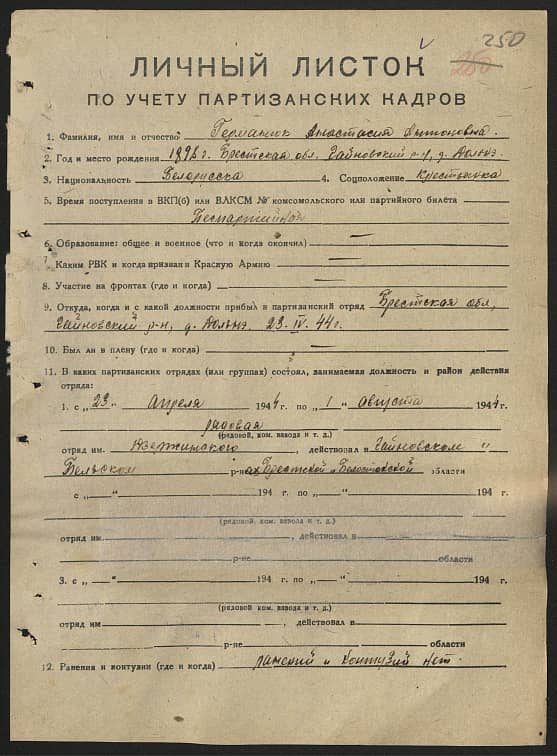 250
250
ЛИЧНЫЙ ЛИСТОК
ПО УЧЕТУ ПАРТИЗАНСКИХ КАДРОВ
1. Фамилия, имя и отчество Германюк Анастасия Антоновна.
2. Год и место рождения 1898 г. Брестская обл. Гайновский р-н, д.
3. Национальность Белорусска 4. Соцположение Крестьянка
5. Время поступления в ВКП(б) или ВЛКСМ № комсомольского или партийного билета
Беспартийная
6. Образование: общее и военное (что и когда окончил) —
7. Каким РВК и когда призван в Красную Армию —
8. Участие на фронтах (где и когда) —
9. Откуда, как и с какой должности прибыл в партизанский отряд Брестская обл,
Гайновский р-н, д. 23. IV. 44 г.
10. Был ли в плену (где и когда) —
11. В каких партизанских отрядах (или группах) состоял, занимаемая должность и район действия
отряда:
1. с „23“ Апреля 1944 г. по „1“ Августа 1944 г.
рядовая
(рядовой, ком. взвода и т. д.)
отряд им. Дзержинского, действовал в Гайновском и
Бельском р-нах Брестской и Белостокской области
с „—“ 194 г. по „—“ 194 г.
(рядовой, ком. взвода и т. д.)
отряд им —, действовал в
р-не области
3. с „—“ 194 г. по „—“ 194 г.
(рядовой, ком. взвода и т. д.)
отряд им , действовал в
р-не области
12. Ранения и контузии (где и когда) и контузий нет.